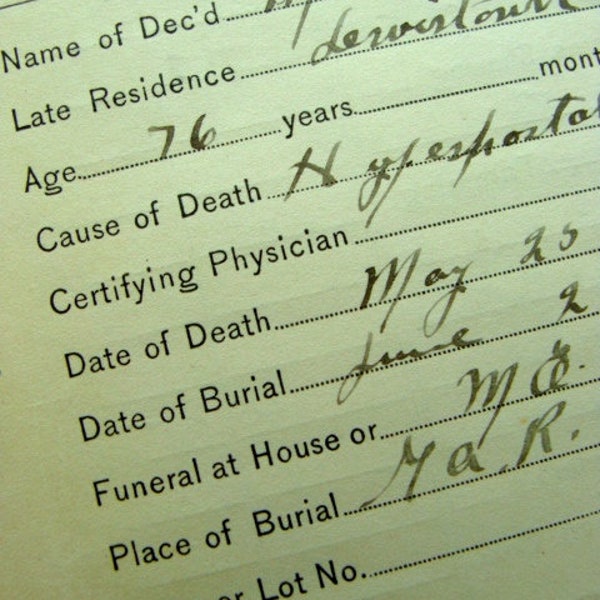 Name of Dec'd
Late Residence Lewistown
Age 76 years mont
Cause of Death Hypespostal
Certifying Physician
Date of Death May 25
Date of Burial June 2
Funeral at House or M.E.
Place of Burial G.A.R.
or Lot No.